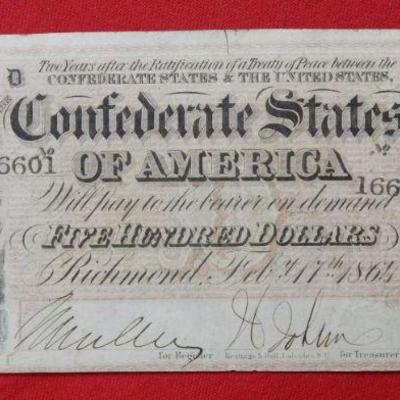 D
Two Years after the Ratification of a Treaty of Peace between the
CONFEDERATE STATES & THE UNITED STATES,
Confederate States
6601 No
OF AMERICA
No 166
Will pay to the bearer on demand
FIVE HUNDRED DOLLARS
Richmond, Feby. 17th 1864
for Register
Keatinge & Ball, Columbia, S.C.
for Treasurer